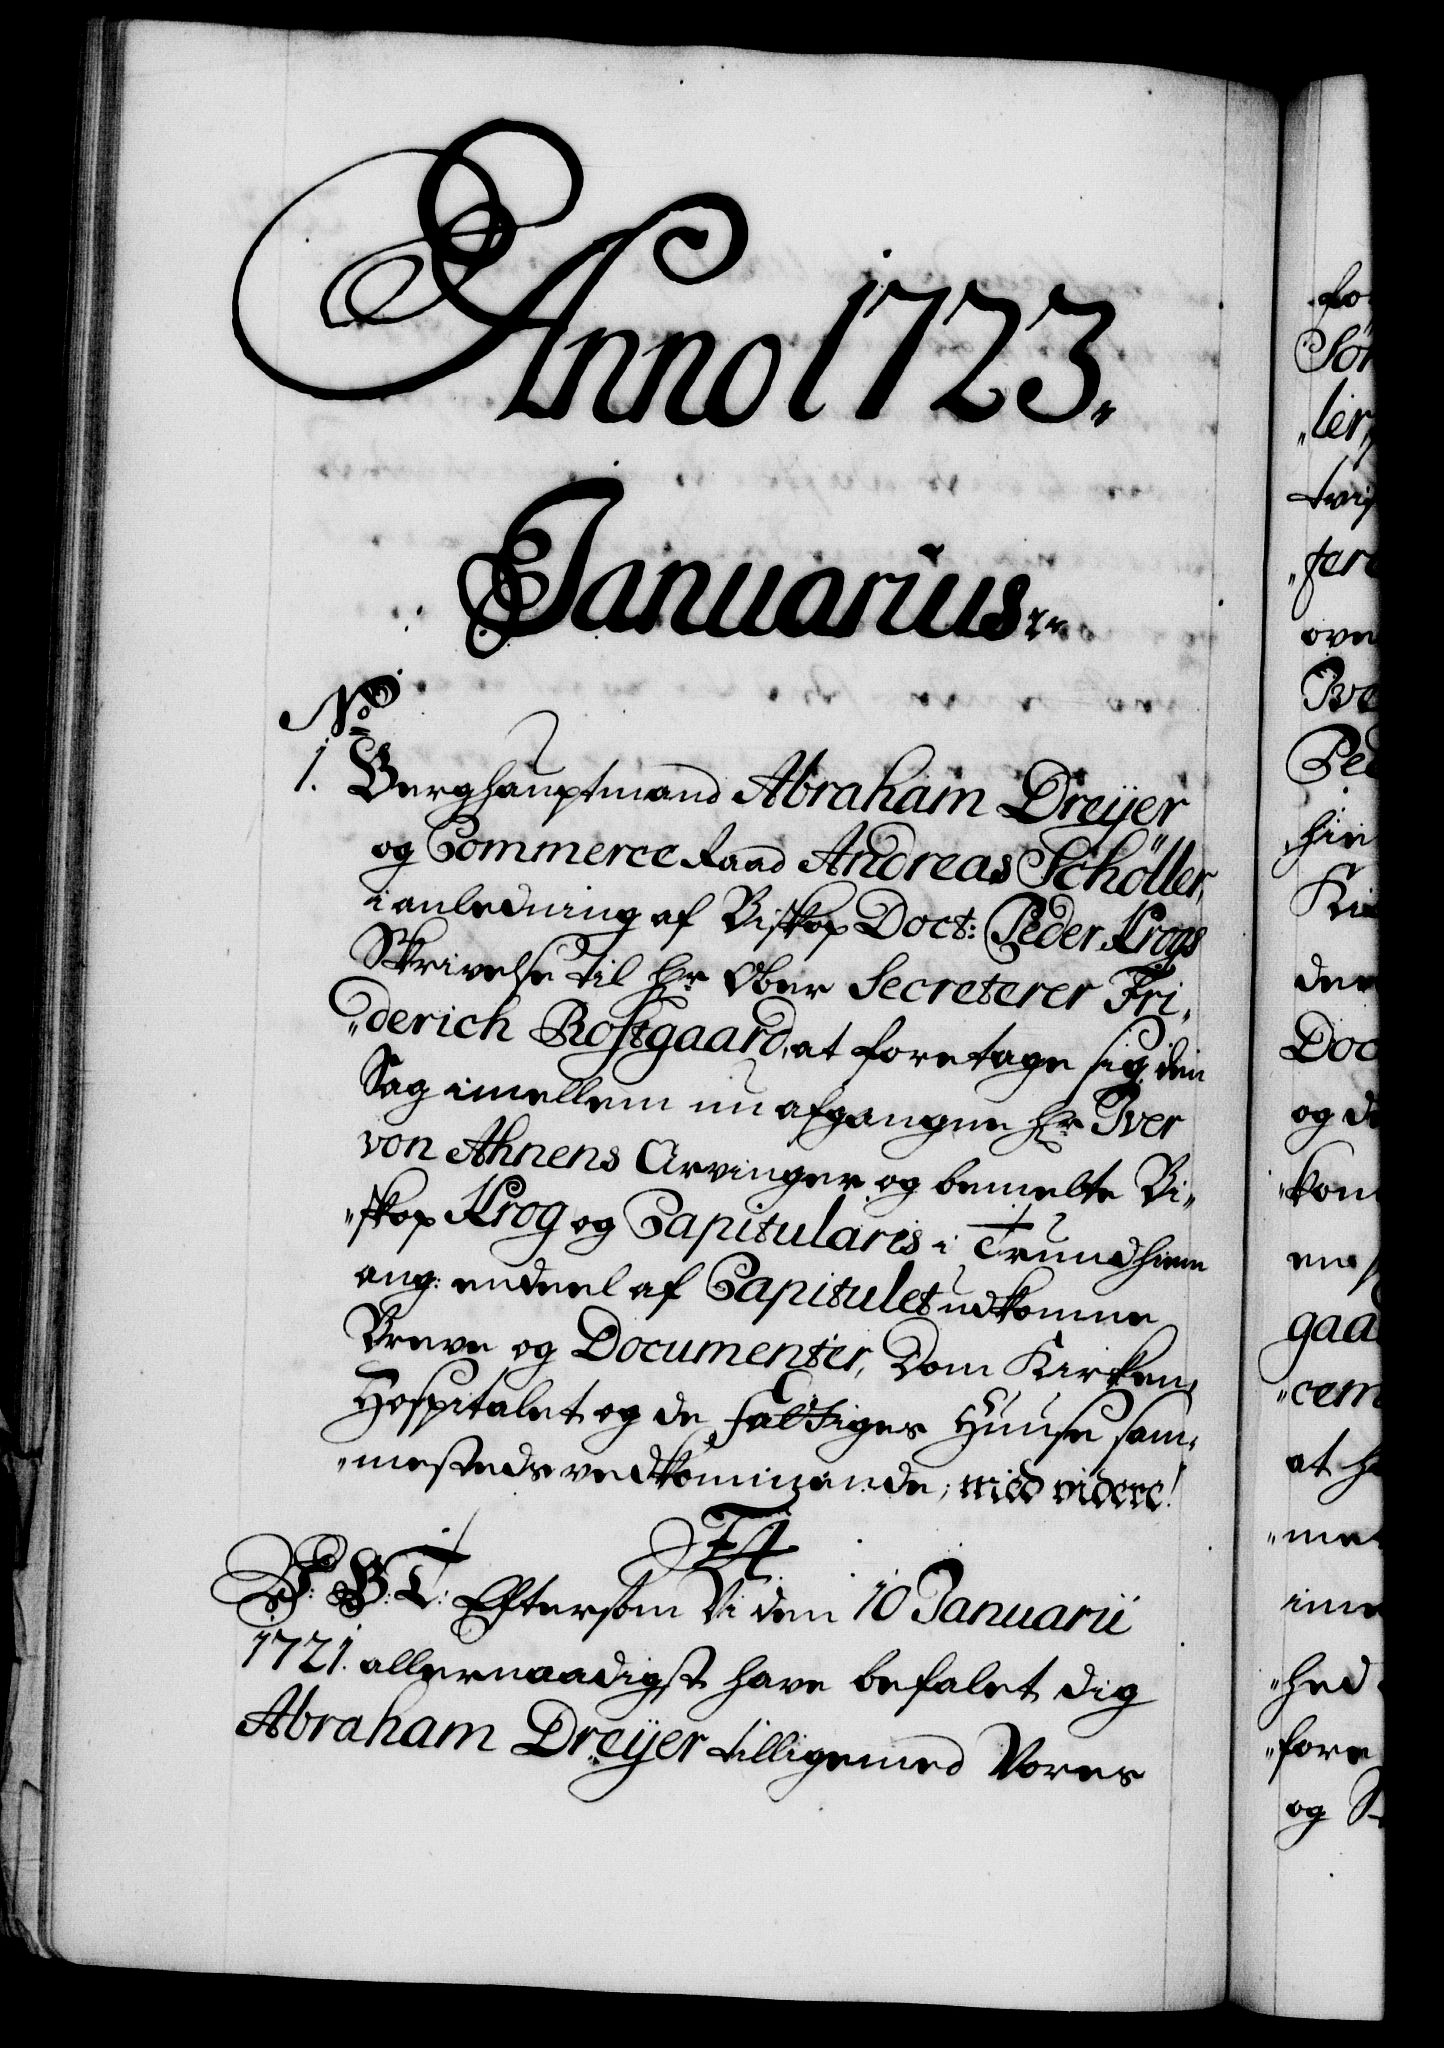 Anno 1723.
Januarius.
No
1. Berghauptmand Abraham Dreÿer
og Commerce Raad Andreas Schøller,
i anledning af Biskop Doct: Peder Krogs
Skrivelse til Hr Ober Secreterer Fri,,
,,derich Rostgaard, at foretage sig den
Sag imellem nu afgangne Hr Iver
von Ahnens Arvinger og bemelte Bi,,
,,skop Krog og Capitularis i Trundhiem
ang: endeel af Capitulet udkomne
Breve og Documenter, Dom Kirken,
Hospitalet og de fattiges Huuse sam,,
,,mesteds vedkommende, med videre!
F4
P: G: T: Eftersom Vi den 10 Januarii
1721. allernaadigst have befalet dig
Abraham Dreÿer tilligemed Vores
fo
Sch
,,ler,
tvis
,,fere
ove
Bre
Ped
hie
Ki
den
Doc
og d
,,kom
en
gaa
,,cem
at h
,,me
ime
,,hed
,,fore
og S